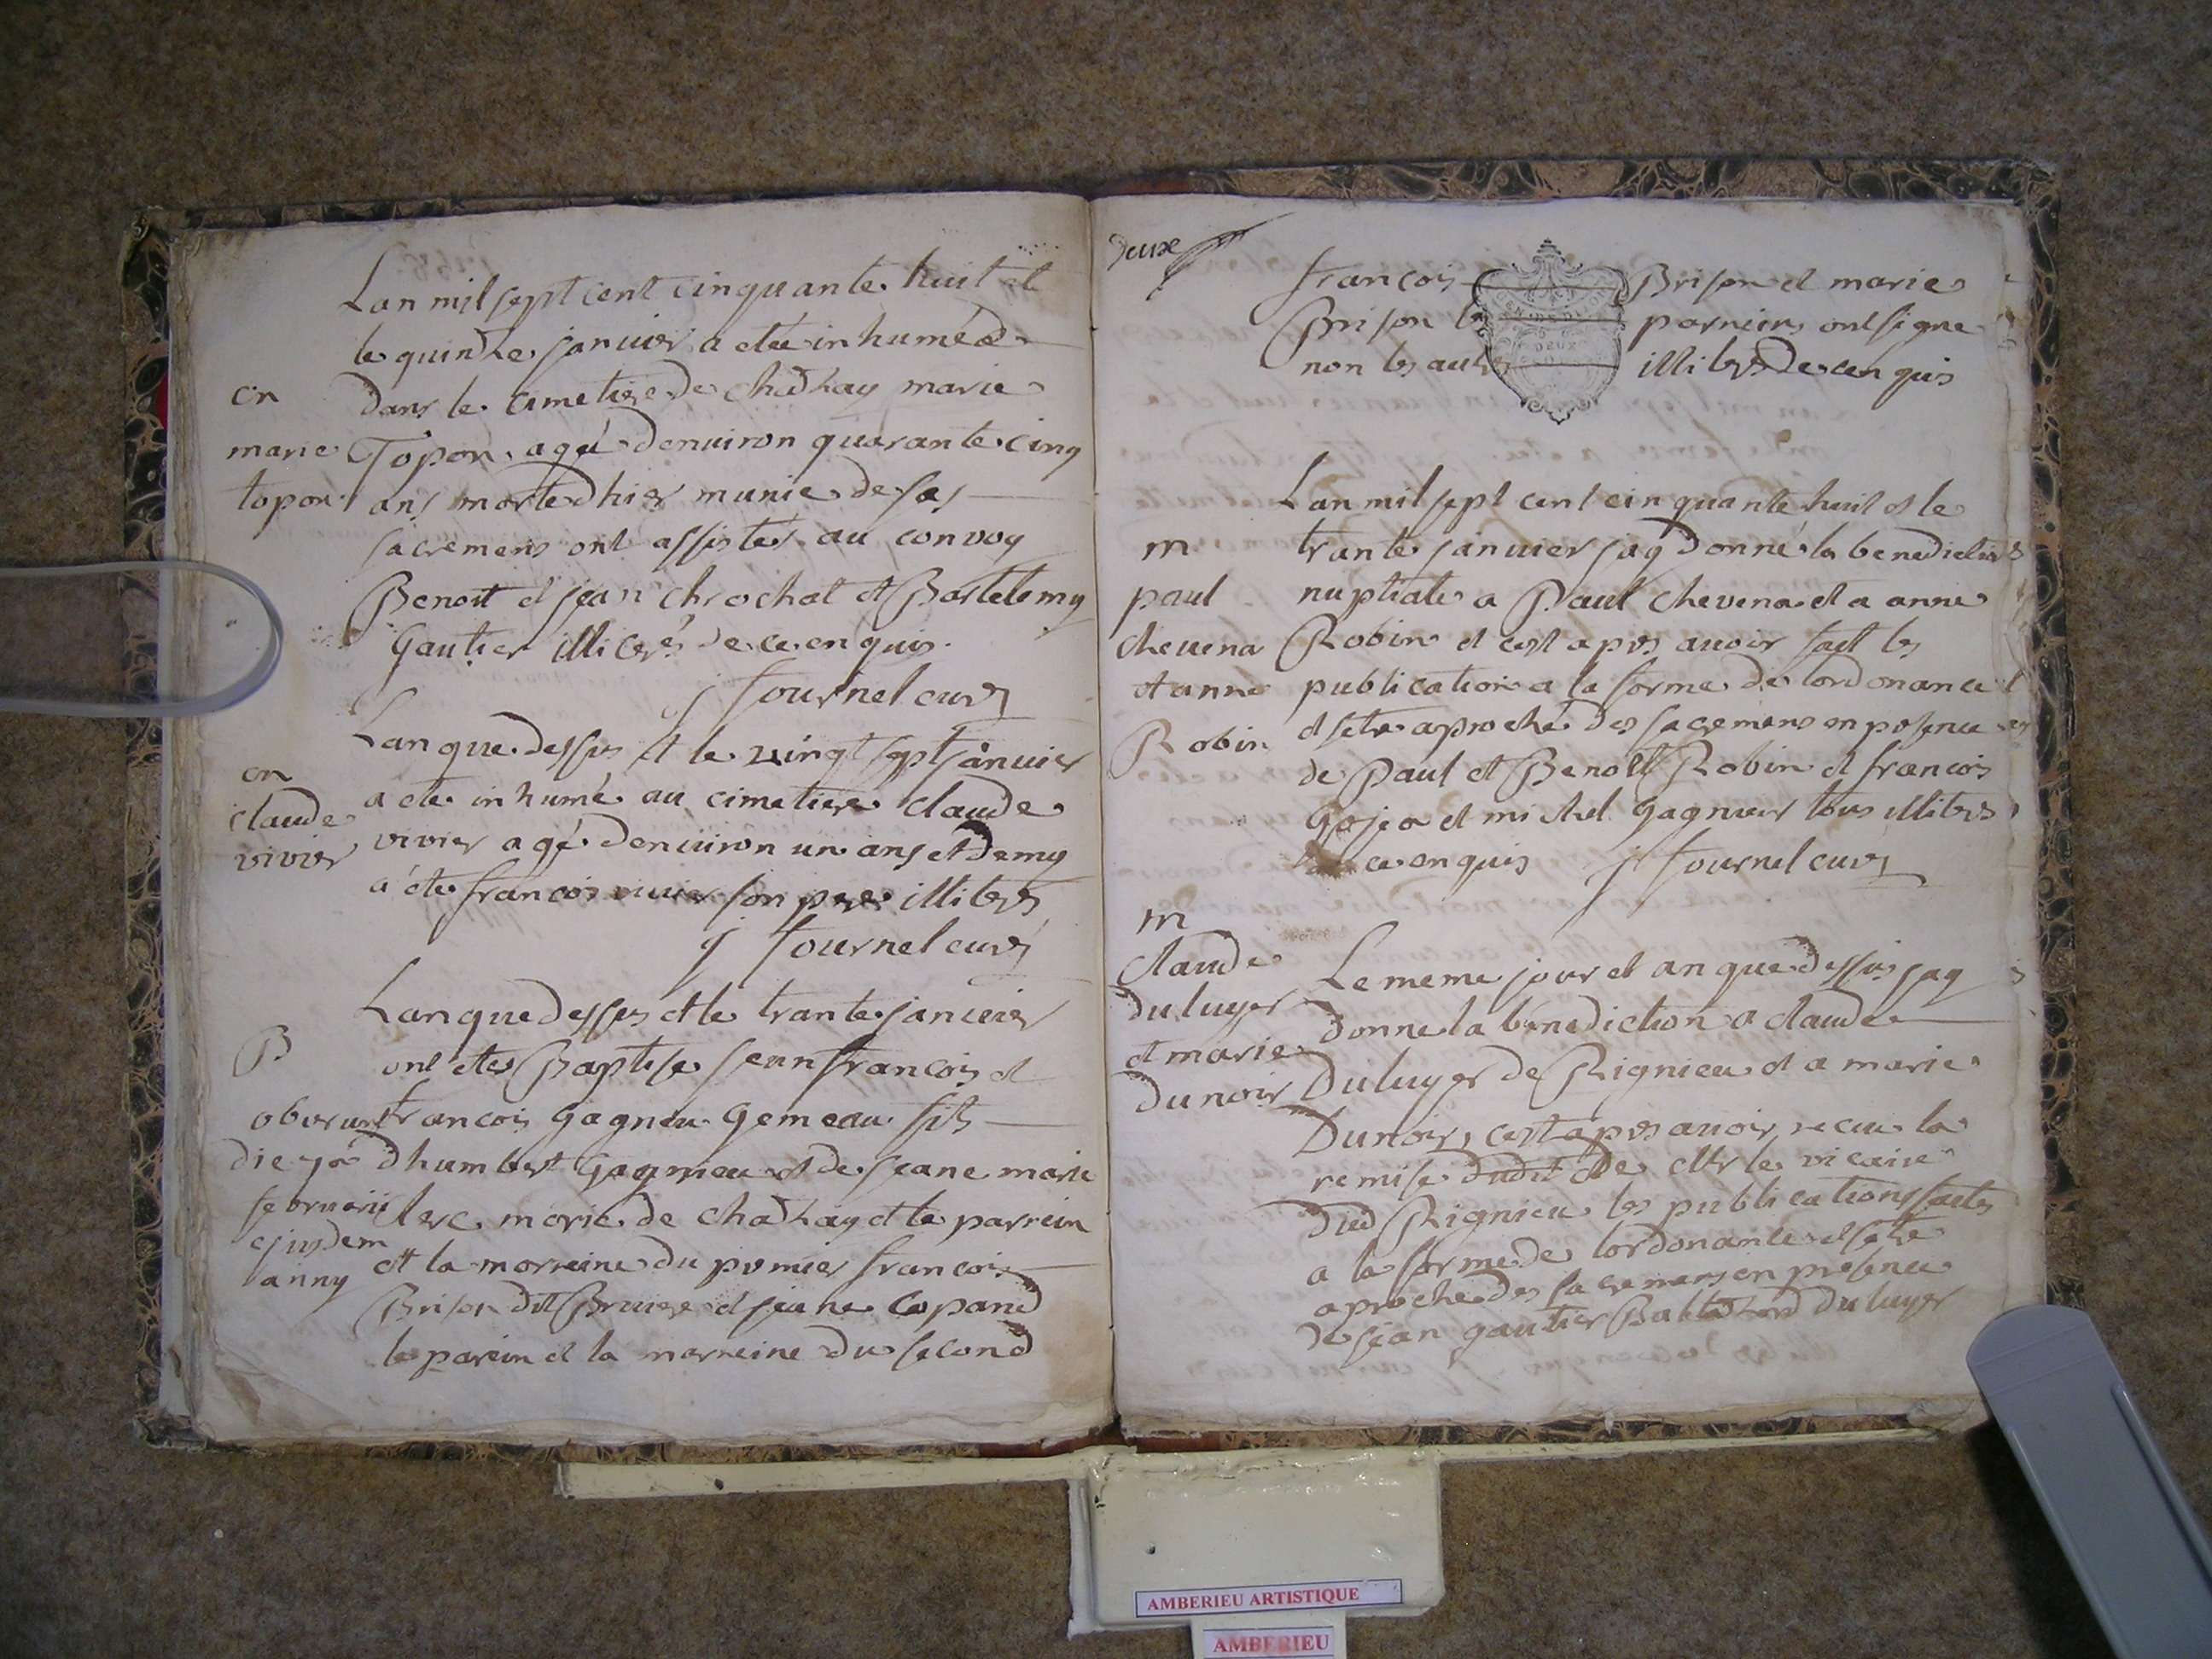 Lan mil sept cent cinquante huit et
le quinze janvier a etée inhumée
dans le cimetiere de chazhay marie
Topon agé denviron quarante cinq
ans morte dhier munie de ses
sacremens ont assistés au convoy
Benoit et jean chrochat et Bartelemy
Gautier illiterés de ce enquis
j fournel curé
en
marie
topon
Lan que dessus et le vingt sept janvier
a ete inhumé au cimetiere claude
vivier agé denviron un ans et demy
a ete francois vivier son pere illiterés
j fournel curé
en
claude
vivier
Lan que dessus et le trante janvier
ont etes Baptise jean francois et
francois Gagneu Gemeau fils
dhumbert Gagnieu et de jeane marie
clerc marie de chazhay et le parrein
et la marreine du premier francois
Brison dit Bruiere et jeane Copand
le parein et la marreine du second
B
oberunt
die 7a
februarii
ejusdem
anny
Deuxe
francois Brison et marie
Brison les parreins ont signe
non les autres illiteres de ce enquis
DEUX
Lan mil sept cent cinquante huit et le
trante janvier jay donné la benediction
nuptiale a Paul chevena et a anne
Robin et cest apres avoir fait les
publication a la forme de lordonance
et setre aproché des sacremens en presence
de Paul et Benoit Robin et francois
Gojea et michel Gagnieur tous illiteres
ce enquis j fournel curé
m
paul
chevena
et anne
Robin
Le meme jour et an que dessus jay
donne la benediction a claude
Duluyer de Rignieu et a marie
Dunoir, cest apres avoir recue la
remise dudit de Mr le vicaire
dud Rignieu les publications faites
a la forme de lordonance et setre
aproche des sacremens en presence
de jean gautier Duluyer
m
claude
duluyer
et marie
dunoir
AMBERIEU ARTISTIQUE
AMBERIEU